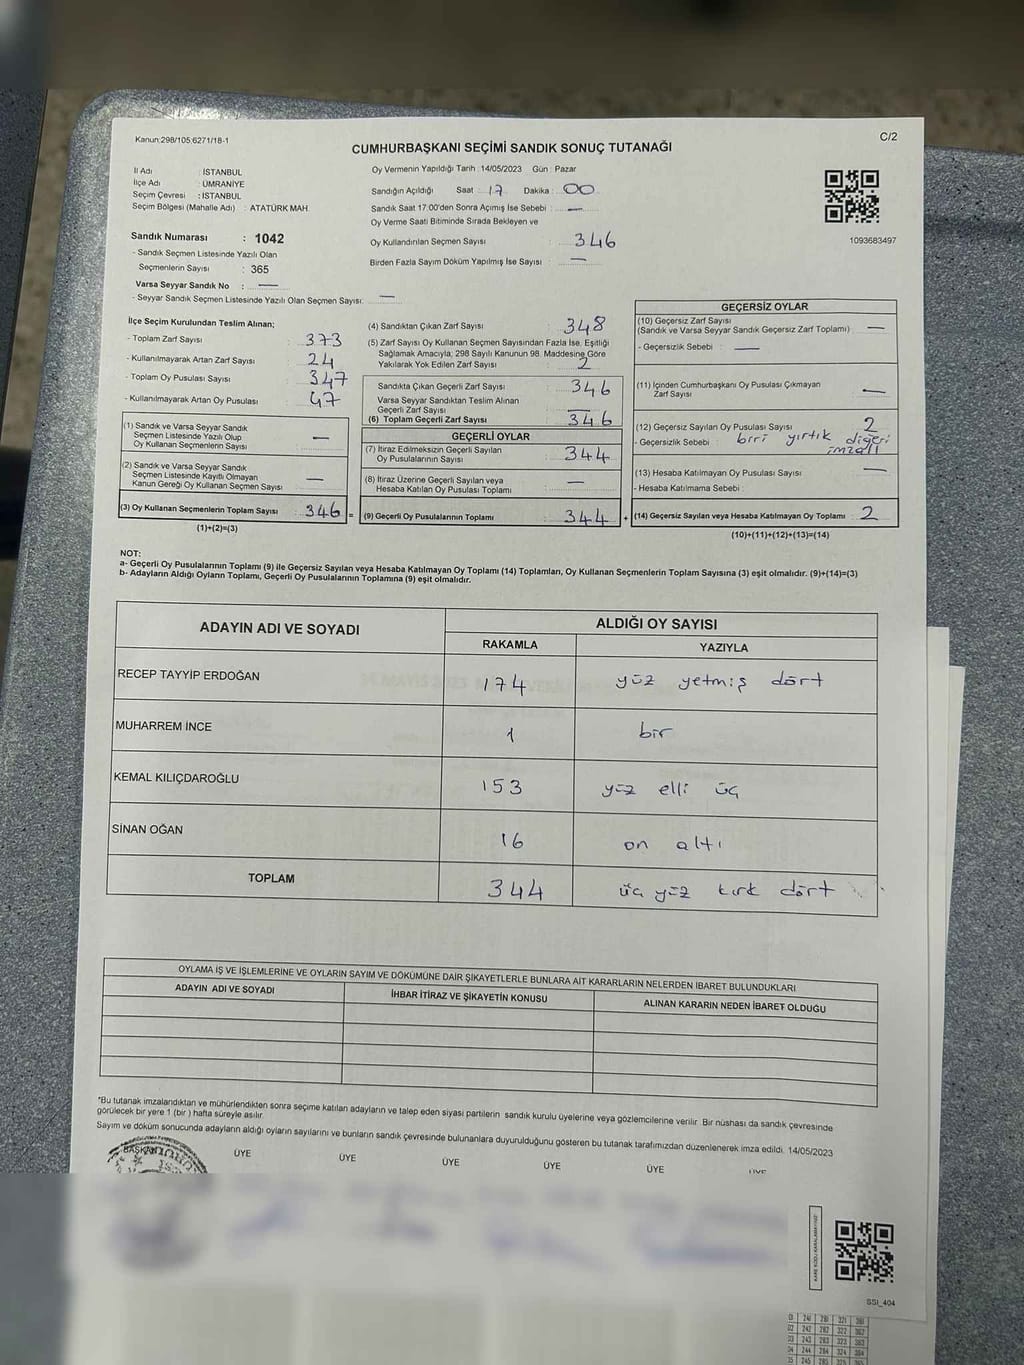 Kanun:298/105:6271/18-1
C/2
CUMHURBAŞKANI SEÇİMİ SANDIK SONUÇ TUTANAĞI
İl Adı : İSTANBUL
İlçe Adı : ÜMRANİYE
Seçim Çevresi : İSTANBUL
Seçim Bölgesi (Mahalle Adı) : ATATÜRK MAH.
Sandık Numarası : 1042
- Sandık Seçmen Listesinde Yazılı Olan
Seçmenlerin Sayısı : 365
Varsa Seyyar Sandık No : —
- Seyyar Sandık Seçmen Listesinde Yazılı Olan Seçmen Sayısı: —
Oy Vermenin Yapıldığı Tarih :14/05/2023 Gün : Pazar
Sandığın Açıldığı Saat : 17 Dakika : 00
Sandık Saat 17:00'den Sonra Açımış İse Sebebi : —
Oy Verme Saati Bitiminde Sırada Bekleyen ve
Oy Kullandırılan Seçmen Sayısı : 346
Birden Fazla Sayım Döküm Yapılmış İse Sayısı : —
1093683497
İlçe Seçim Kurulundan Teslim Alınan;
- Toplam Zarf Sayısı : 373
- Kullanılmayarak Artan Zarf Sayısı : 24
- Toplam Oy Pusulası Sayısı : 347
- Kullanılmayarak Artan Oy Pusulası : 47
(1) Sandık ve Varsa Seyyar Sandık
Seçmen Listesinde Yazılı Olup
Oy Kullanan Seçmenlerin Sayısı : —
(2) Sandık ve Varsa Seyyar Sandık
Seçmen Listesinde Kayıtlı Olmayan
Kanun Gereği Oy Kullanan Seçmen Sayısı : —
(3) Oy Kullanan Seçmenlerin Toplam Sayısı : 346 =
(1)+(2)=(3)
(4) Sandıktan Çıkan Zarf Sayısı : 348
(5) Zarf Sayısı Oy Kullanan Seçmen Sayısından Fazla İse, Eşitliği
Sağlamak Amacıyla, 298 Sayılı Kanunun 98. Maddesine Göre
Yakılarak Yok Edilen Zarf Sayısı : 2
Sandıkta Çıkan Geçerli Zarf Sayısı : 346
Varsa Seyyar Sandıktan Teslim Alınan
Geçerli Zarf Sayısı : —
(6) Toplam Geçerli Zarf Sayısı : 346
GEÇERLİ OYLAR
(7) İtiraz Edilmeksizin Geçerli Sayılan
Oy Pusulalarının Sayısı : 344
(8) İtiraz Üzerine Geçerli Sayılan veya
Hesaba Katılan Oy Pusulası Toplamı : —
(9) Geçerli Oy Pusulalarının Toplamı : 344 +
GEÇERSİZ OYLAR
(10) Geçersiz Zarf Sayısı
(Sandık ve Varsa Seyyar Sandık Geçersiz Zarf Toplamı) : —
- Geçersizlik Sebebi : —
(11) İçinden Cumhurbaşkanı Oy Pusulası Çıkmayan
Zarf Sayısı : —
(12) Geçersiz Sayılan Oy Pusulası Sayısı : 2
- Geçersizlik Sebebi : biri yırtık diğeri
imzalı
(13) Hesaba Katılmayan Oy Pusulası Sayısı : —
- Hesaba Katılmama Sebebi :
(14) Geçersiz Sayılan veya Hesaba Katılmayan Oy Toplamı : 2
(10)+(11)+(12)+(13)=(14)
NOT:
a- Geçerli Oy Pusulalarının Toplamı (9) ile Geçersiz Sayılan veya Hesaba Katılmayan Oy Toplamı (14) Toplamları, Oy Kullanan Seçmenlerin Toplam Sayısına (3) eşit olmalıdır. (9)+(14)=(3)
b- Adayların Aldığı Oyların Toplamı, Geçerli Oy Pusulalarının Toplamına (9) eşit olmalıdır.
ADAYIN ADI VE SOYADI
ALDIĞI OY SAYISI
RAKAMLA YAZIYLA
RECEP TAYYİP ERDOĞAN 174 yüz yetmiş dört
MUHARREM İNCE 1 bir
KEMAL KILIÇDAROĞLU 153 yüz elli üç
SİNAN OĞAN 16 on altı
TOPLAM 344 üç yüz kırk dört
OYLAMA İŞ VE İŞLEMLERİNE VE OYLARIN SAYIM VE DÖKÜMÜNE DAİR ŞİKAYETLERLE BUNLARA AİT KARARLARIN NELERDEN İBARET BULUNDUKLARI
ADAYIN ADI VE SOYADI İHBAR İTİRAZ VE ŞİKAYETİN KONUSU ALINAN KARARIN NEDEN İBARET OLDUĞU
*Bu tutanak imzalandıktan ve mühürlendikten sonra seçime katılan adayların ve talep eden siyasi partilerin sandık kurulu üyelerine veya gözlemcilerine verilir. Bir nüshası da sandık çevresinde
görülecek bir yere 1 (bir) hafta süreyle asılır.
Sayım ve döküm sonucunda adayların aldığı oyların sayılarını ve bunların sandık çevresinde bulunanlara duyurulduğunu gösteren bu tutanak tarafımızdan düzenlenerek imza edildi. 14/05/2023
BAŞKAN ÜYE ÜYE ÜYE ÜYE ÜYE ÜYE
KARE KODU KARALAMAYINIZ!
SSI_404
241 281 321 361
242 282 322 362
243 283 323 363
244 284 324 364
245 285 325